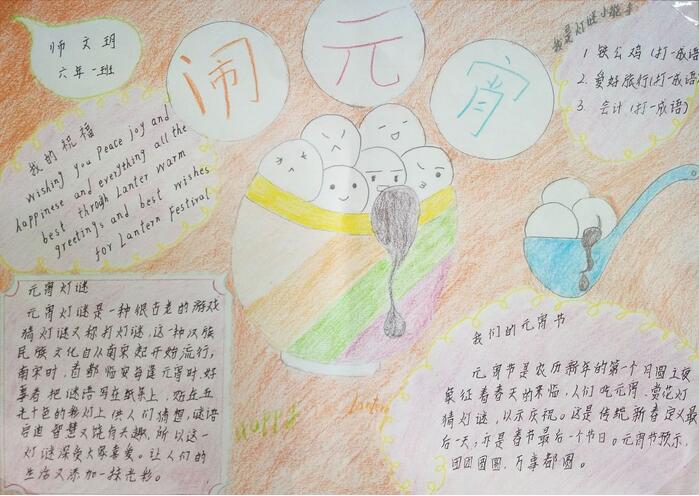 师文玥
六年一班
闹元宵
我是灯谜小能手
1 铁公鸡(打一成语)
2. 爱好旅行(打一成语)
3. 会计(打一成语)
我的祝福
Wishing you Peace joy and
happinese and everything all the
best through Lanter warm
greetings and best wishes
for Lantern Festival
元宵灯谜
元宵灯谜是一种很古老的游戏
猜灯谜又称打灯谜,这一种汉族
民族文化自从南宋起开始流行,
南宋时,首都临安每逢元宵时,好
事者把谜语写在纸条上,贴在五
光十色的彩灯上供人们猜想,谜语
启迪智慧又饶有兴趣,所以这一
灯谜深受大家喜爱。让人们的
生活又添加一抹光彩。
Happy
Lantern
我们的元宵节
元宵节是农历新年的第一个月圆之夜
象征着春天的来临,人们吃元宵、赏花灯
猜灯谜,以示庆祝。这是传统新春定义最
后一天,亦是春节最后一个节日。元宵节预示,
团团圆圆,万事都圆。